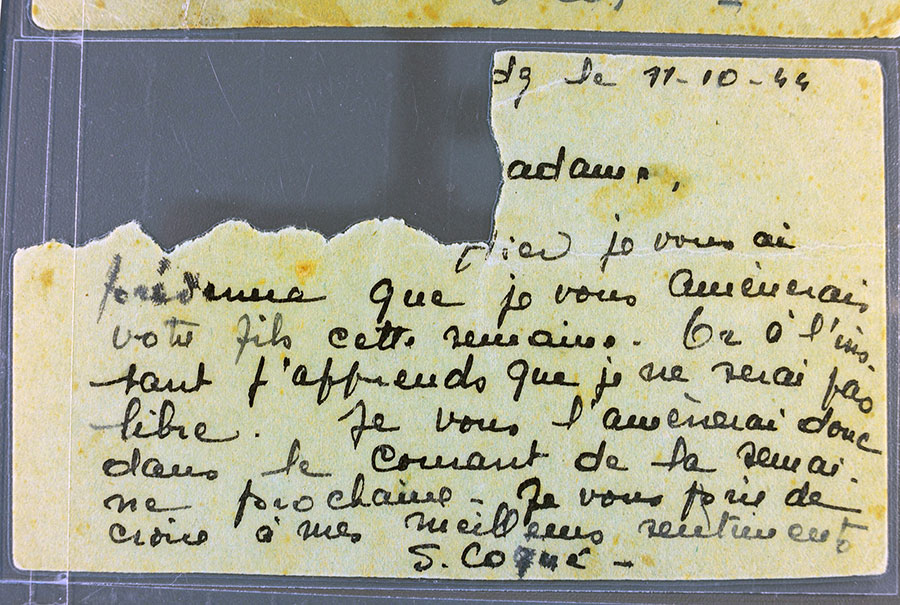 le 11-10-44
adame,
Hier je vous ai
que je vous amènerais
votre fils cette semaine. Or à l'ins
tant j'apprends que je ne serai pas
libre. Je vous l'amènerai donc
dans le courant de la semai.
ne prochaine - Je vous prie de
croire à mes meilleurs sentiments
S. Co